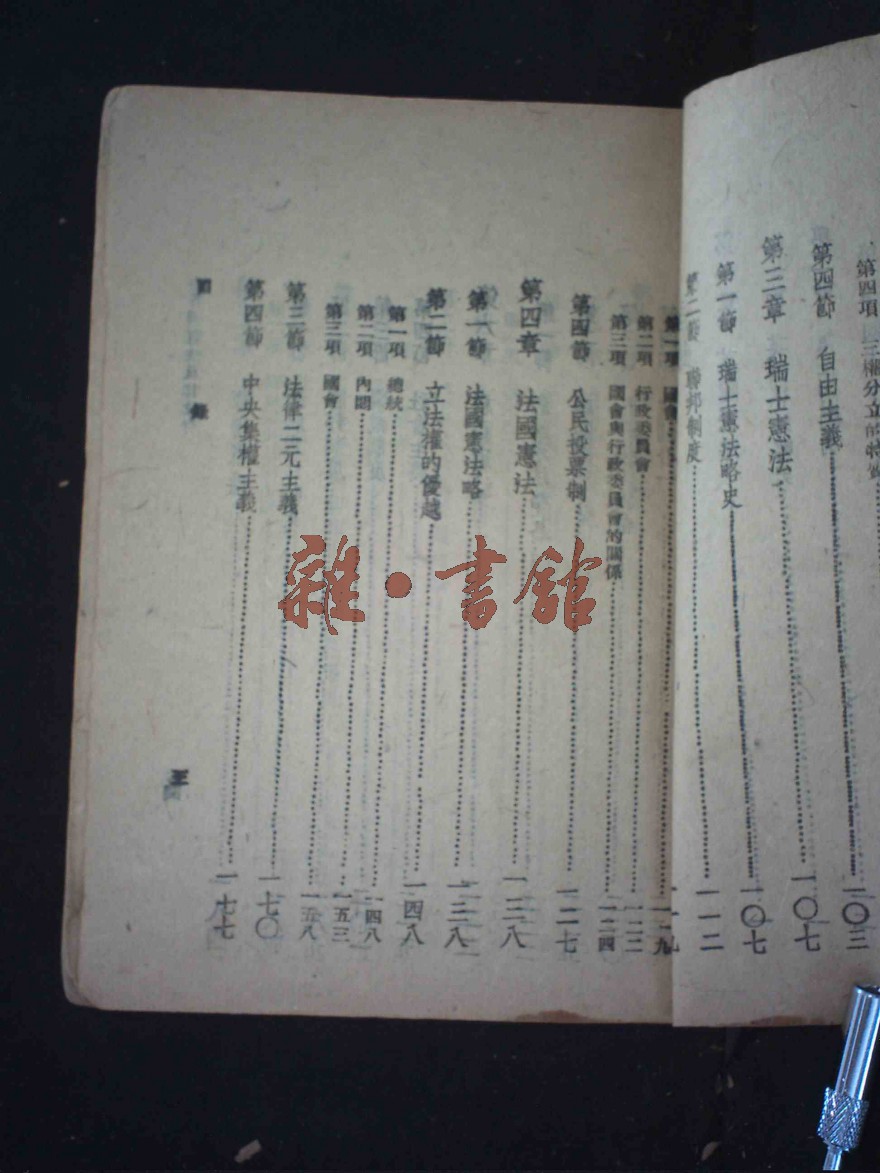 第四項 三權分立的特質
第四節 自由主義 一〇三
第三章 瑞士憲法 一〇七
第一節 瑞士憲法略史 一〇七
第二節 聯邦制度 一一二
一一九
第一項 國會 一一九
第二項 行政委員會 一二二
第三項 國會與行政委員會的關係 一二四
第四節 公民投票制 一二七
第四章 法國憲法 一三八
第一節 法國憲法略 一三八
第二節 立法權的優越 一四八
第一項 總統 一四八
第二項 內閣 一五三
第三項 國會 一五八
第三節 法律二元主義 一七〇
第四節 中央集權主義 一七七
目錄 三
雜·書館